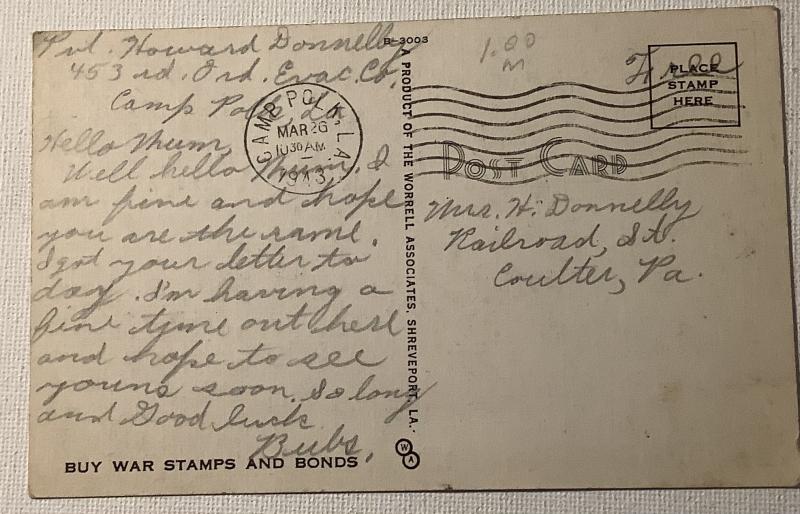 Pvt. Howard Donnelly
453 rd. Ord. Evac. Co,
Camp Polk, La.
Hello Mum,
Well hello Mum. I
am fine and hope
you are the same.
I got your letter to
day. I'm having a
fine tyme out here
and hope to see
youns soon. So long
and Good luck
Bubs,
BUY WAR STAMPS AND BONDS
B-3003
A PRODUCT OF THE WORRELL ASSOCIATES, SHREVEPORT, LA.
WA
CAMP POLK, LA.
MAR 26
10 30 AM
1943
1.00
M
Free
PLACE
STAMP
HERE
POST CARD
Mrs. H. Donnelly
Railroad, St.
Coulter, Pa.